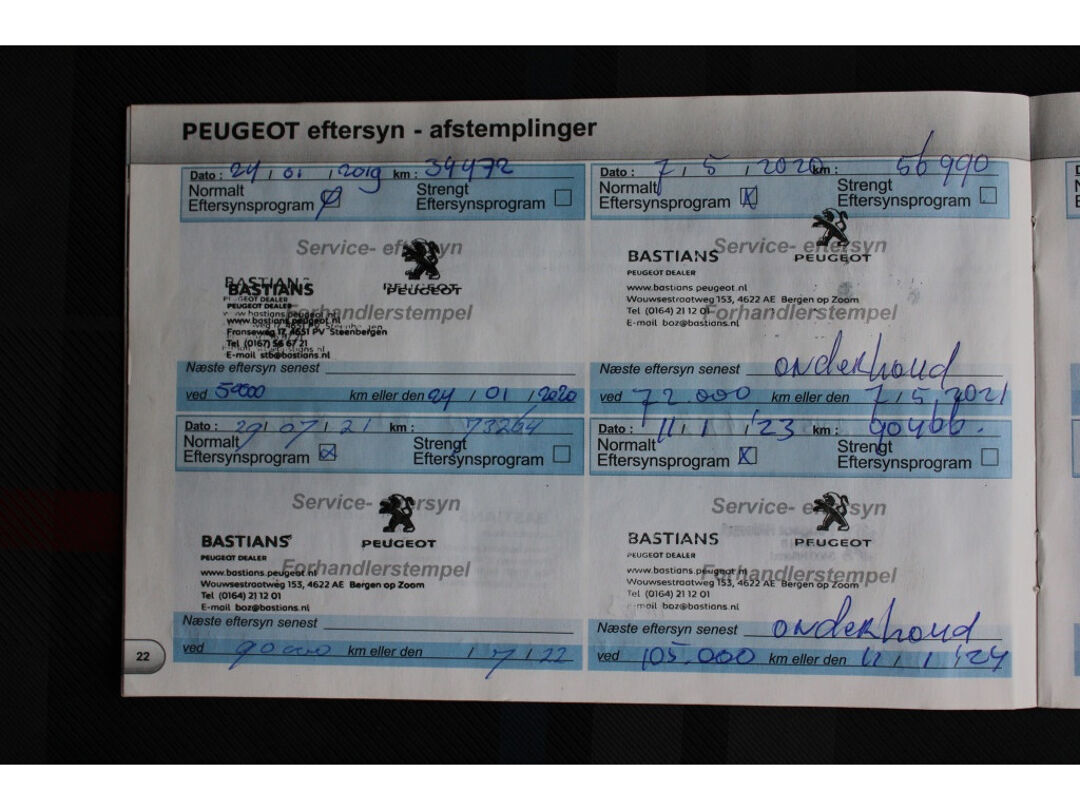 PEUGEOT eftersyn - afstemplinger
Dato : 24 / 01 / 2019 km : 34472
Normalt
Eftersynsprogram
Strengt
Eftersynsprogram
Service- eftersyn
PEUGEOT
BASTIANS
PEUGEOT DEALER
www.bastians.peugeot.nl
Franseweg 17, 4651 PV Steenbergen
Tel (0167) 56 67 21
E-mail stb@bastians.nl
Forhandlerstempel
Næste eftersyn senest
ved 50000 km eller den 24 / 01 / 2020
Dato : 7 / 5 / 2020 km : 56990
Normalt
Eftersynsprogram
Strengt
Eftersynsprogram
Service- eftersyn
PEUGEOT
BASTIANS
PEUGEOT DEALER
www.bastians.peugeot.nl
Wouwsestraatweg 153, 4622 AE Bergen op Zoom
Tel (0164) 21 12 01
E-mail boz@bastians.nl
Forhandlerstempel
Næste eftersyn senest onderhoud
ved 72.000 km eller den 7 / 5 / 2021
Dato : 29 / 07 / 21 km : 73264
Normalt
Eftersynsprogram
Strengt
Eftersynsprogram
Service- eftersyn
PEUGEOT
BASTIANS
PEUGEOT DEALER
www.bastians.peugeot.nl
Wouwsestraatweg 153, 4622 AE Bergen op Zoom
Tel (0164) 21 12 01
E-mail boz@bastians.nl
Forhandlerstempel
Næste eftersyn senest
ved 90000 km eller den / 7 / 22
Dato : 11 / 1 / '23 km : 90466.
Normalt
Eftersynsprogram
Strengt
Eftersynsprogram
Service- eftersyn
PEUGEOT
BASTIANS
PEUGEOT DEALER
www.bastians.peugeot.nl
Wouwsestraatweg 153, 4622 AE Bergen op Zoom
Tel (0164) 21 12 01
E-mail boz@bastians.nl
Forhandlerstempel
Næste eftersyn senest onderhoud
ved 105.000 km eller den 11 / 1 / '24
22